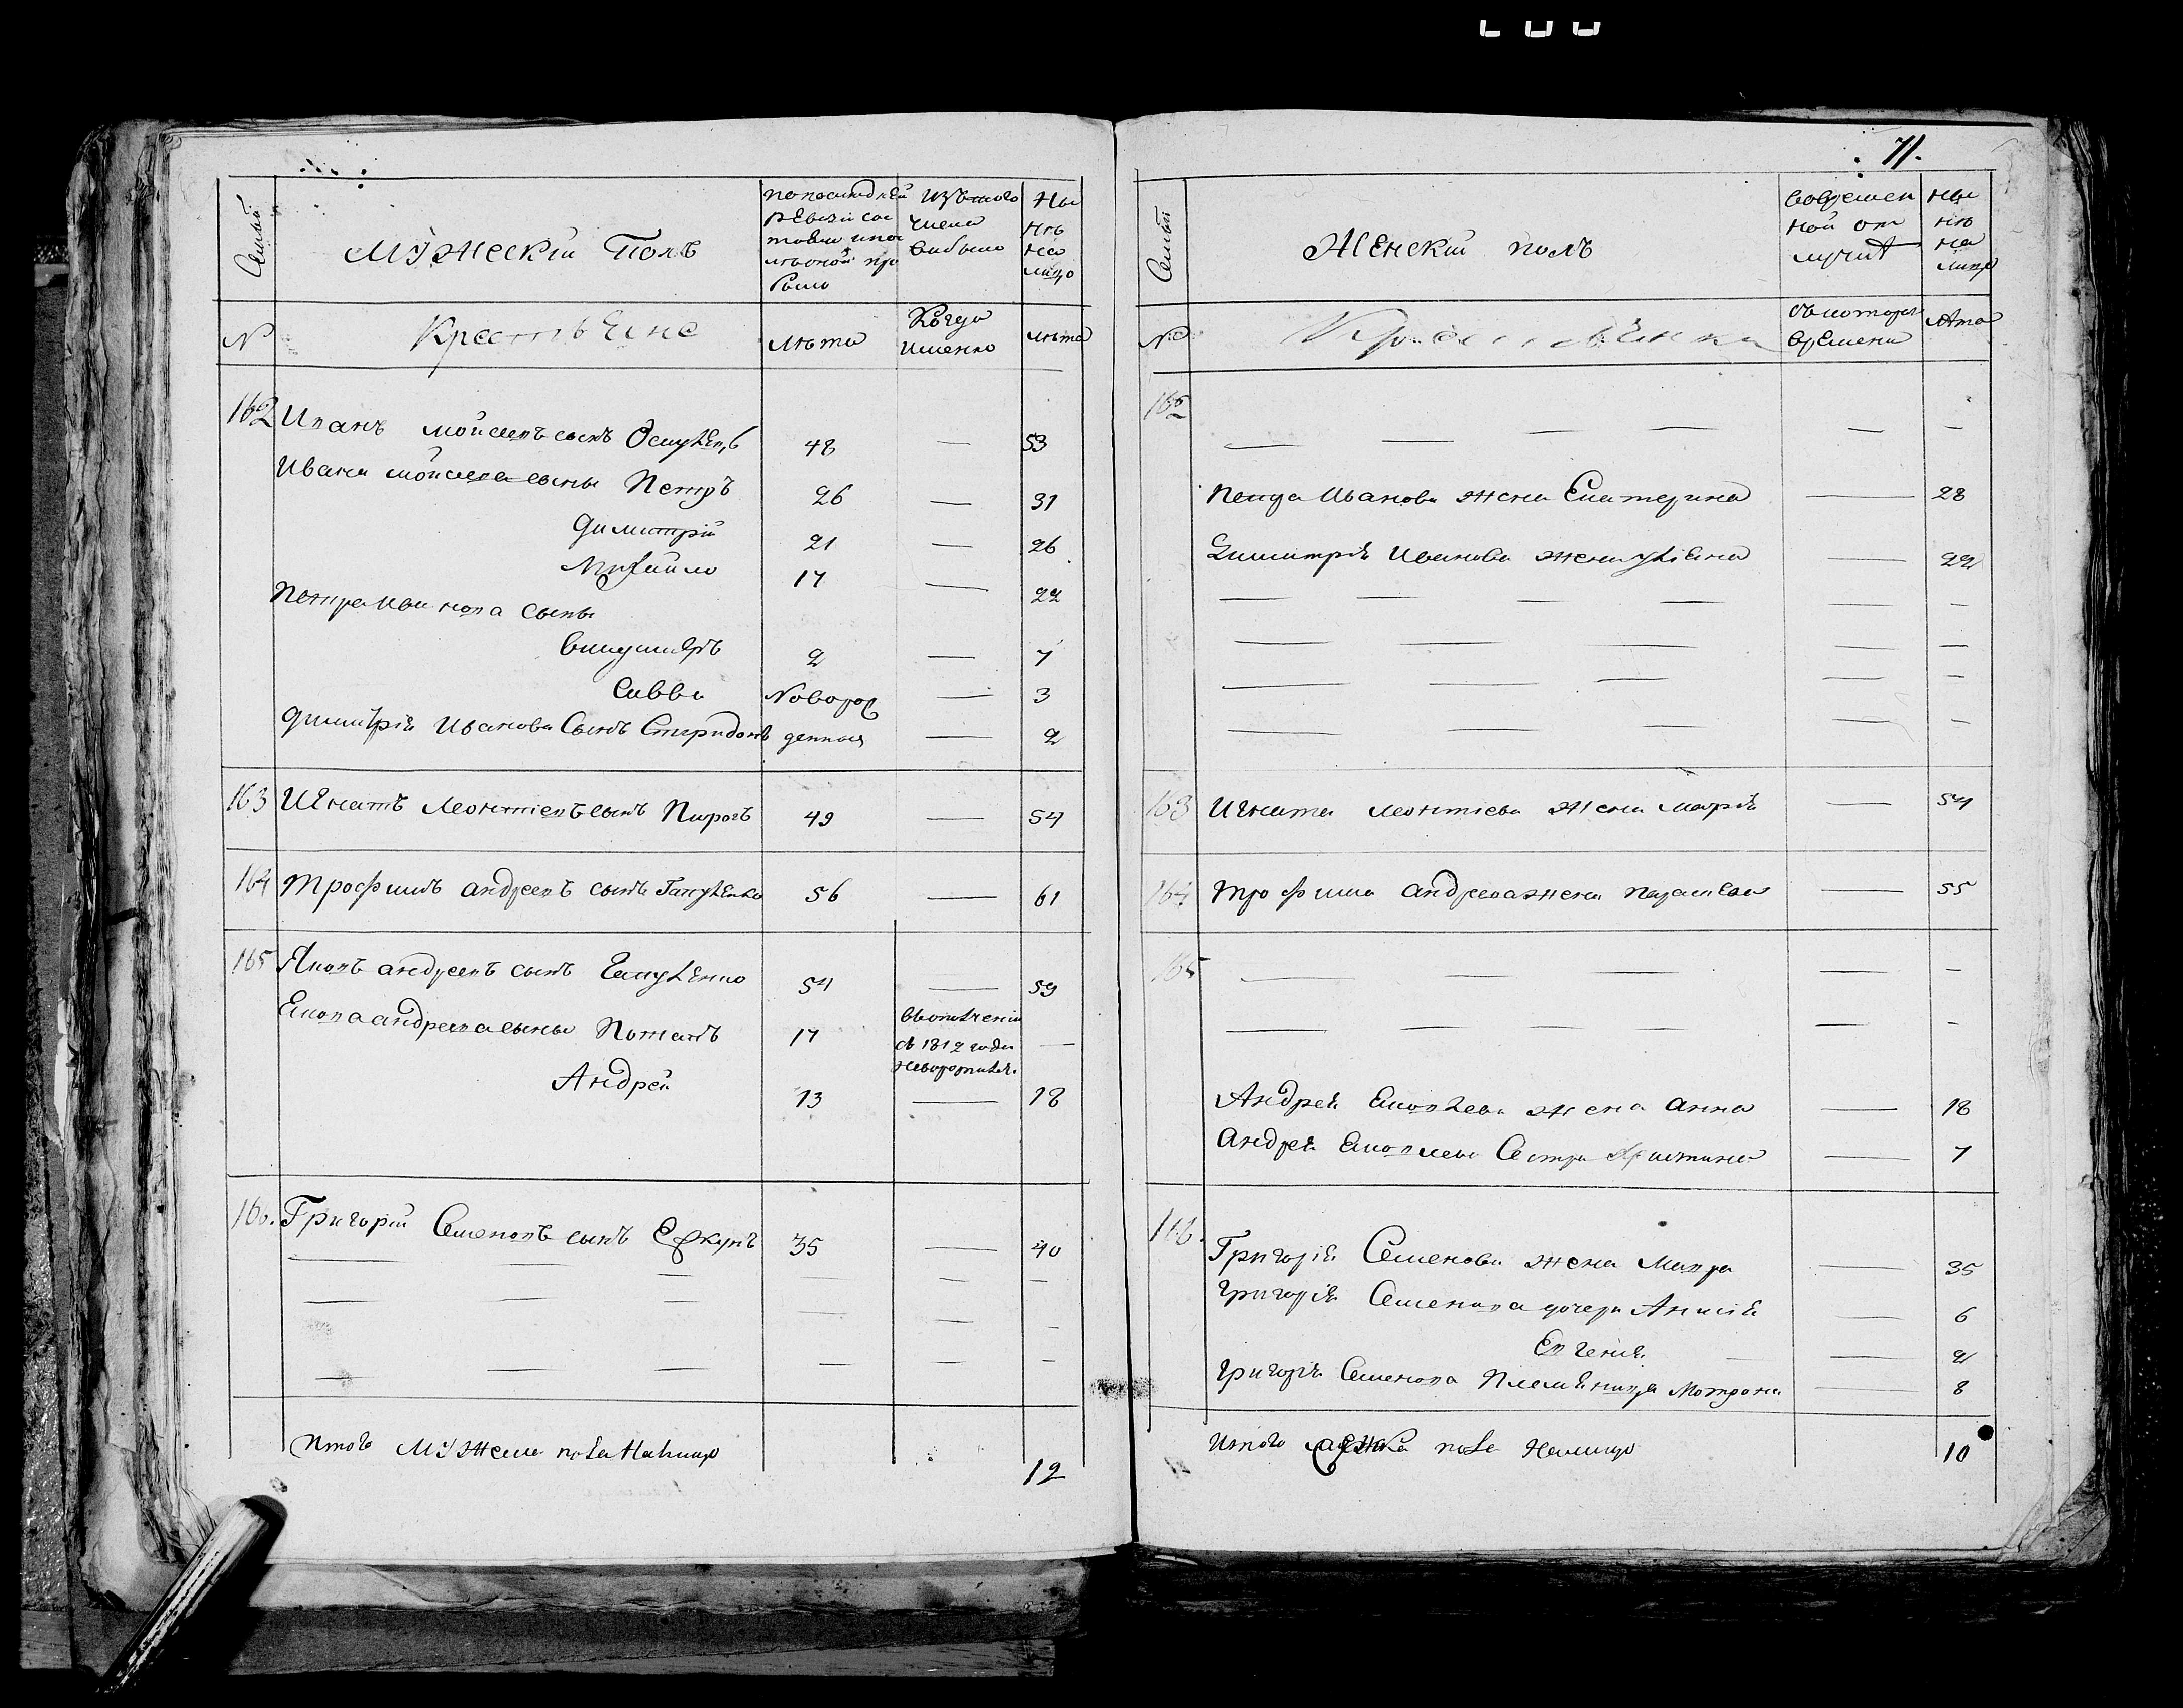 71.
Семьи
Мужескій Полъ
По последней ревизіи состояло и после оной прибыло
Изъ того числа выбыло
Ныне на лицо
№
Крестьяне
Лета
Когда именно
лета
162 Иванъ Мойсеевъ сынъ 48 — 53
Ивана Мойсеева сыны Петръ 26 — 31
Димитрій 21 — 26
Михайло 17 — 22
Петра Иванова сыны
2 — 7
Савва Новорож 3
Димитрія Иванова Сынъ Спиридонъ денныя — 2
163 Игнатъ Леонтіевъ сынъ Пирогъ 49 — 54
164 Трофимъ Андреевъ сынъ Галученко 56 — 61
165 Яковъ Андреевъ сынъ Галученко 54 — 59
Якова Андреева сыны Потапъ 17 в ополчении с 1812 года невозвратился —
Андрей 13 — 18
166. Григорій Семеновъ сынъ 35 — 40
Итого Мужеска пола На лицо 12
Семьи
Женскій полъ
Во временной отлучке
Ныне на лицо
№
Крестьянки
Съ которого времени
Лета
162
Петра Иванова жена Екатерина — 28
Димитрія Иванова жена Улiяна — 22
163 Игната Леонтіева жена Марія — 54
164 Трофима Андреева жена Параскева — 55
165
Андрея Яковлева жена Анна — 18
Андрея Яковлева Сестра Христина — 7
166. Григорія Семенова жена Мавра — 35
Григорія Семенова дочери Анисія — 6
Евгенія — 2
Григорія Семенова Племянница Мотрона — 8
Итого женска пола На лицо 10